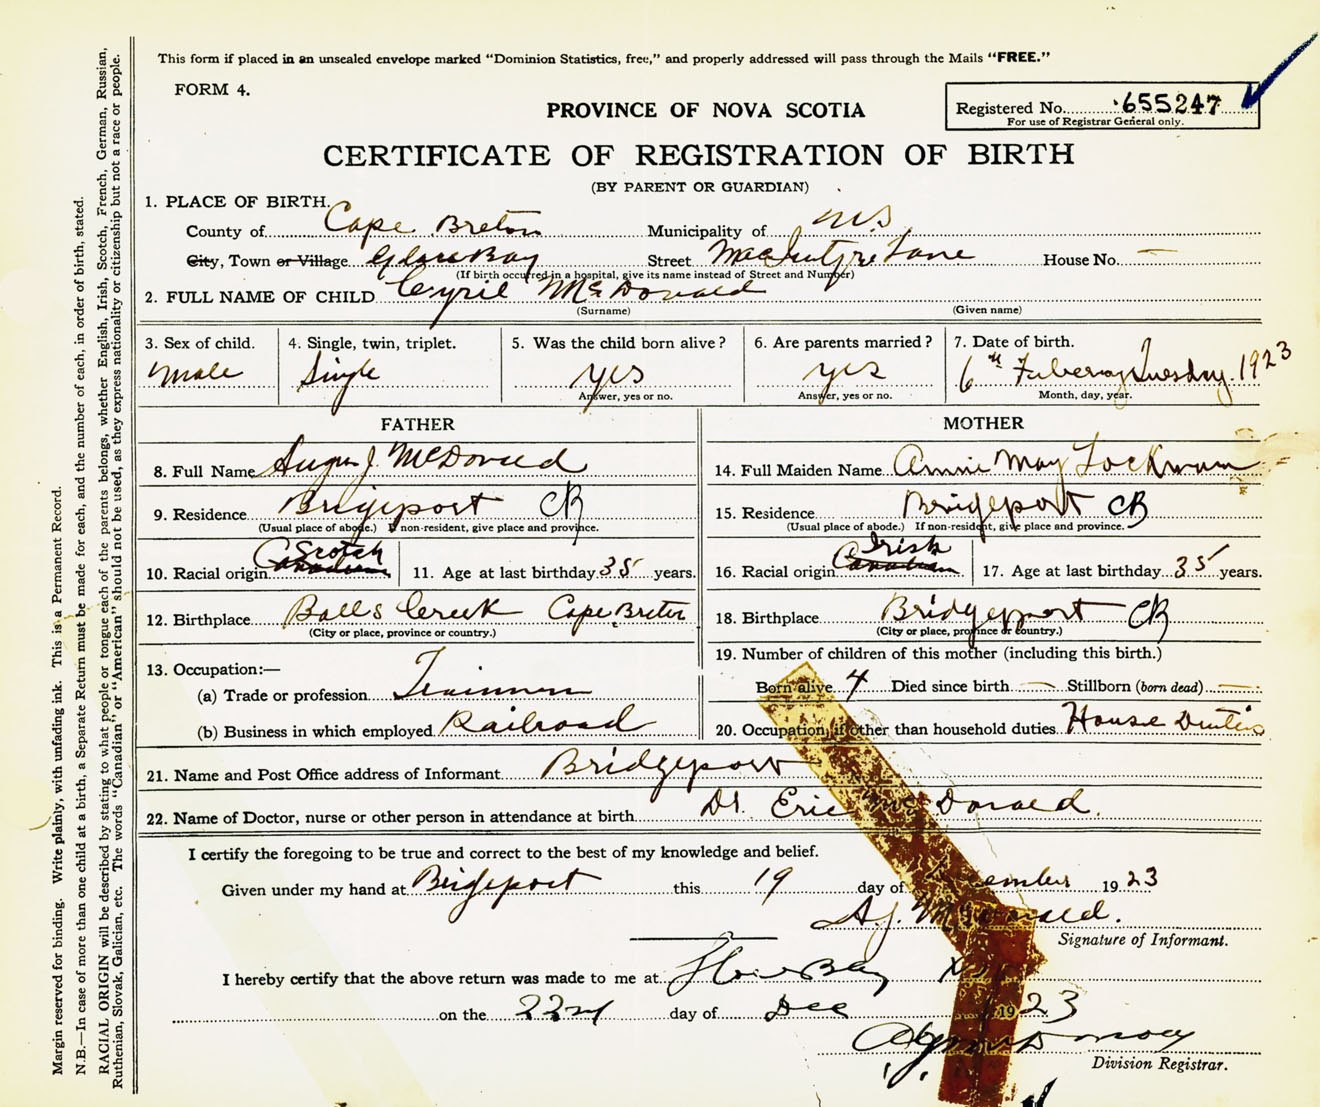 This form if placed in an unsealed envelope marked "Dominion Statistics, free," and properly addressed will pass through the Mails "FREE."
FORM 4.
PROVINCE OF NOVA SCOTIA
Registered No. 655247
For use of Registrar General only.
CERTIFICATE OF REGISTRATION OF BIRTH
(BY PARENT OR GUARDIAN)
1. PLACE OF BIRTH.
County of Cape Breton Municipality of N.S
City, Town or Village Glace Bay Street MacIntyre Lane House No. —
(If birth occurred in a hospital, give its name instead of Street and Number)
2. FULL NAME OF CHILD Cyril McDonald
(Surname) (Given name)
3. Sex of child. 4. Single, twin, triplet. 5. Was the child born alive? 6. Are parents married? 7. Date of birth.
Male Single yes yes 6th Tuesday. 1923
Answer, yes or no. Answer, yes or no. Month, day, year.
FATHER MOTHER
8. Full Name Angus J. McDonald 14. Full Maiden Name Annie May Lockman
9. Residence Bridgeport CB 15. Residence Bridgeport CB
(Usual place of abode.) If non-resident, give place and province. (Usual place of abode.) If non-resident, give place and province.
Scotch Irish
10. Racial origin Canadian 11. Age at last birthday 35 years. 16. Racial origin Canadian 17. Age at last birthday 35 years.
12. Birthplace Balls Creek Cape Breton 18. Birthplace Bridgeport CB
(City or place, province or country.) (City or place, province or country.)
19. Number of children of this mother (including this birth.)
13. Occupation:—
(a) Trade or profession Trainman Born alive 4 Died since birth — Stillborn (born dead) —
(b) Business in which employed Railroad 20. Occupation, if other than household duties House Duties
21. Name and Post Office address of Informant Bridgeport
22. Name of Doctor, nurse or other person in attendance at birth Dr. Eric McDonald.
I certify the foregoing to be true and correct to the best of my knowledge and belief.
Given under my hand at Bridgeport this 19 day of 1923
A.J. McDonald.
Signature of Informant.
I hereby certify that the above return was made to me at Glace Bay
on the 22nd day of Dec 1923
Division Registrar.
Margin reserved for binding. Write plainly, with unfading ink. This is a Permanent Record.
N.B.—In case of more than one child at a birth, a Separate Return must be made for each, and the number of each, in order of birth, stated.
RACIAL ORIGIN will be described by stating to what people or tongue each of the parents belongs, whether English, Irish, Scotch, French, German, Russian,
Ruthenian, Slovak, Galician, etc. The words "Canadian" or "American" should not be used, as they express nationality or citizenship but not a race or people.